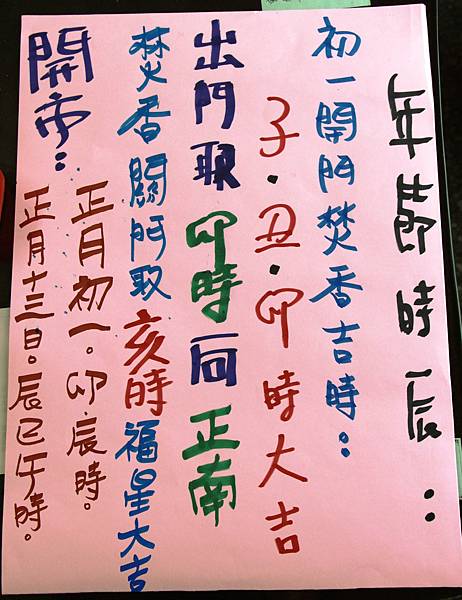 年節時辰：
初一開門焚香吉時：
子．丑．卯時大吉
出門取卯時向正南
焚香關門取亥時福星大吉
開市：
正月初一。卯．辰時。
正月十三日。辰巳午時。